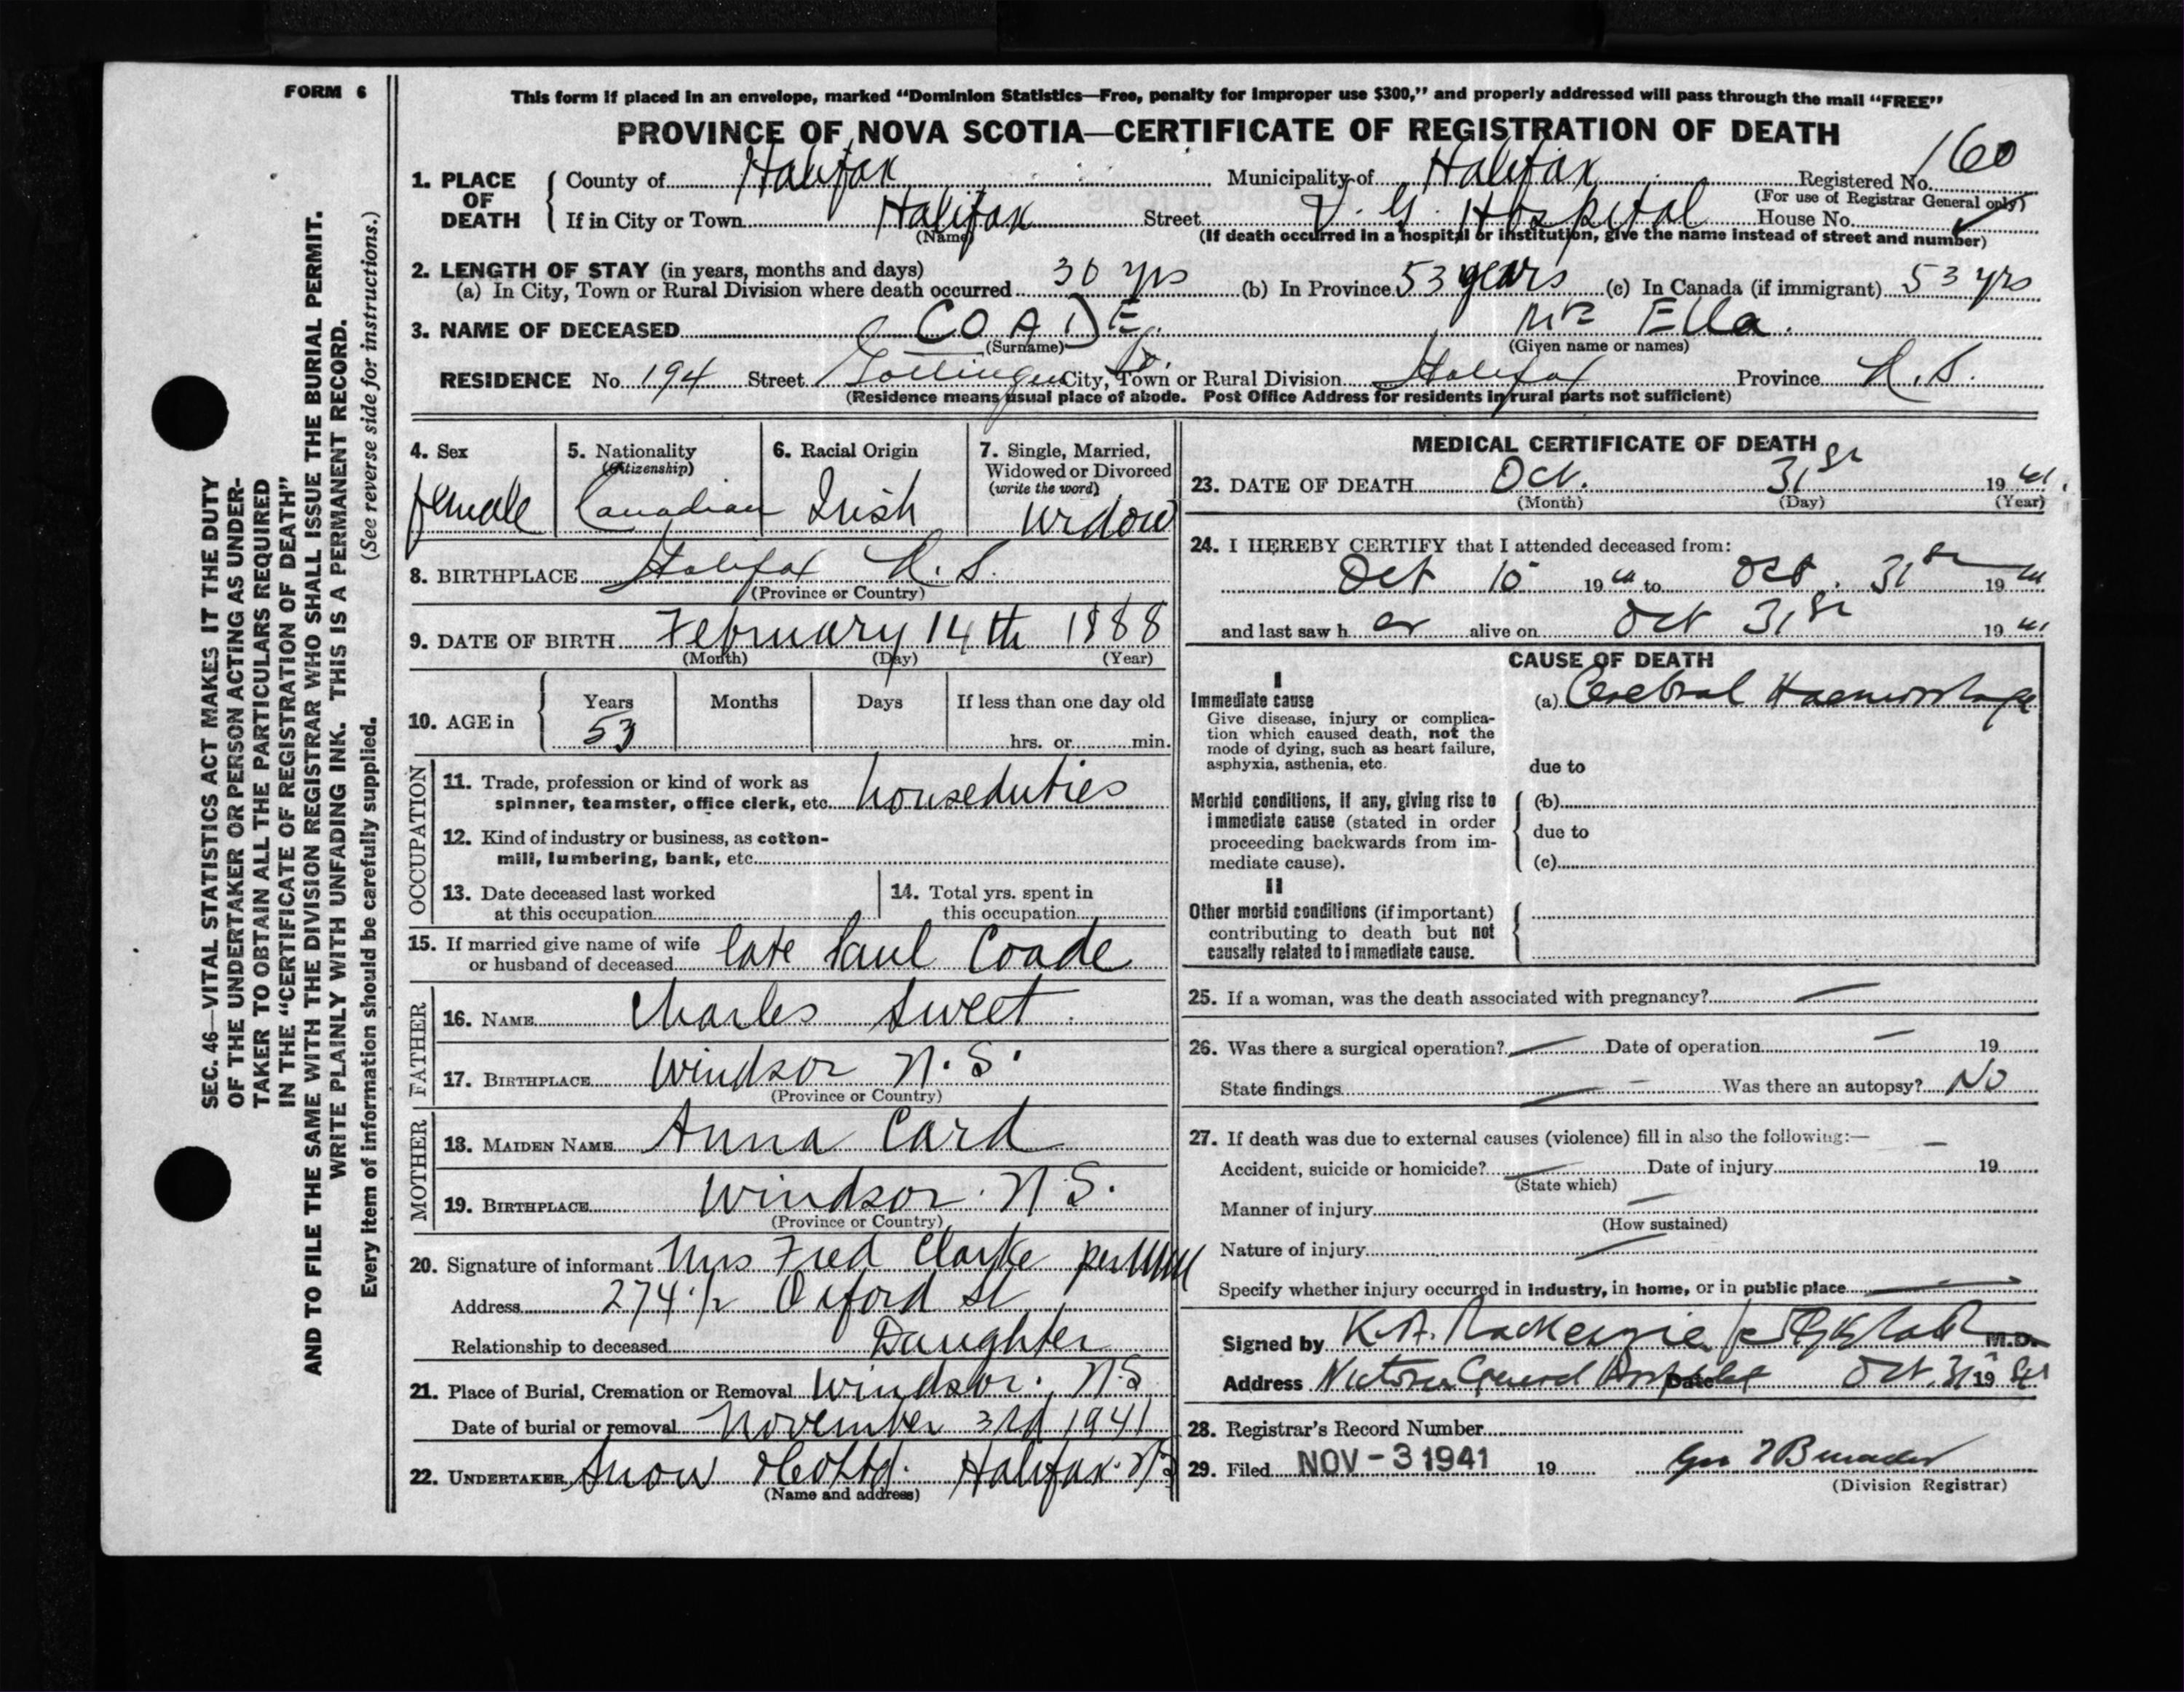 FORM 6
This form if placed in an envelope, marked “Dominion Statistics—Free, penalty for improper use $300,” and properly addressed will pass through the mail “FREE”
PROVINCE OF NOVA SCOTIA—CERTIFICATE OF REGISTRATION OF DEATH
1. PLACE OF DEATH
County of Halifax Municipality of Halifax Registered No. 160
(For use of Registrar General only)
If in City or Town Halifax Street V. G. Hospital House No.
(Name) (If death occurred in a hospital or institution, give the name instead of street and number)
2. LENGTH OF STAY (in years, months and days)
(a) In City, Town or Rural Division where death occurred 30 yrs (b) In Province 53 years (c) In Canada (if immigrant) 53 yrs
3. NAME OF DECEASED COADE Ella.
(Surname) (Given name or names)
RESIDENCE No. 194 Street Gottingen City, Town or Rural Division Halifax Province N.S.
(Residence means usual place of abode. Post Office Address for residents in rural parts not sufficient)
4. Sex
female
5. Nationality
(Citizenship)
Canadian
6. Racial Origin
Irish
7. Single, Married,
Widowed or Divorced
(write the word)
Widow
8. BIRTHPLACE Halifax N.S.
(Province or Country)
9. DATE OF BIRTH February 14th 1888
(Month) (Day) (Year)
10. AGE in
Years Months Days If less than one day old
53 hrs. or min.
OCCUPATION
11. Trade, profession or kind of work as
spinner, teamster, office clerk, etc. houseduties
12. Kind of industry or business, as cotton-
mill, lumbering, bank, etc.
13. Date deceased last worked
at this occupation
14. Total yrs. spent in
this occupation
15. If married give name of wife
or husband of deceased late Paul Coade
FATHER
16. NAME Charles Sweet
17. BIRTHPLACE Windsor N.S.
(Province or Country)
MOTHER
18. MAIDEN NAME Anna Card
19. BIRTHPLACE Windsor. N.S.
(Province or Country)
20. Signature of informant Mrs Fred Clarke per
Address 274 1/2 Oxford St
Relationship to deceased Daughter
21. Place of Burial, Cremation or Removal Windsor. N.S
Date of burial or removal November 3rd 1941
22. UNDERTAKER Snow & Co Ltd. Halifax. N.S
(Name and address)
MEDICAL CERTIFICATE OF DEATH
23. DATE OF DEATH Oct. 31st 1941.
(Month) (Day) (Year)
24. I HEREBY CERTIFY that I attended deceased from:
Oct 1941 to Oct. 31st 1941
and last saw h er alive on Oct 31st 1941
CAUSE OF DEATH
I
Immediate cause
Give disease, injury or complica-
tion which caused death, not the
mode of dying, such as heart failure,
asphyxia, asthenia, etc.
(a) Cerebral Haemorrhage
due to
Morbid conditions, if any, giving rise to
immediate cause (stated in order
proceeding backwards from im-
mediate cause).
(b)
due to
(c)
II
Other morbid conditions (if important)
contributing to death but not
causally related to immediate cause.
25. If a woman, was the death associated with pregnancy? —
26. Was there a surgical operation? — Date of operation — 19
State findings — Was there an autopsy? No
27. If death was due to external causes (violence) fill in also the following:— —
Accident, suicide or homicide? — Date of injury 19
(State which)
Manner of injury —
(How sustained)
Nature of injury —
Specify whether injury occurred in industry, in home, or in public place —
Signed by K.A. MacKenzie M.D.
Address Victoria General Hospital Date Oct. 31 1941
28. Registrar's Record Number
29. Filed NOV - 3 1941 19
(Division Registrar)
SEC. 46—VITAL STATISTICS ACT MAKES IT THE DUTY
OF THE UNDERTAKER OR PERSON ACTING AS UNDER-
TAKER TO OBTAIN ALL THE PARTICULARS REQUIRED
IN THE “CERTIFICATE OF REGISTRATION OF DEATH”
AND TO FILE THE SAME WITH THE DIVISION REGISTRAR WHO SHALL ISSUE THE BURIAL PERMIT.
WRITE PLAINLY WITH UNFADING INK. THIS IS A PERMANENT RECORD.
Every item of information should be carefully supplied. (See reverse side for instructions.)